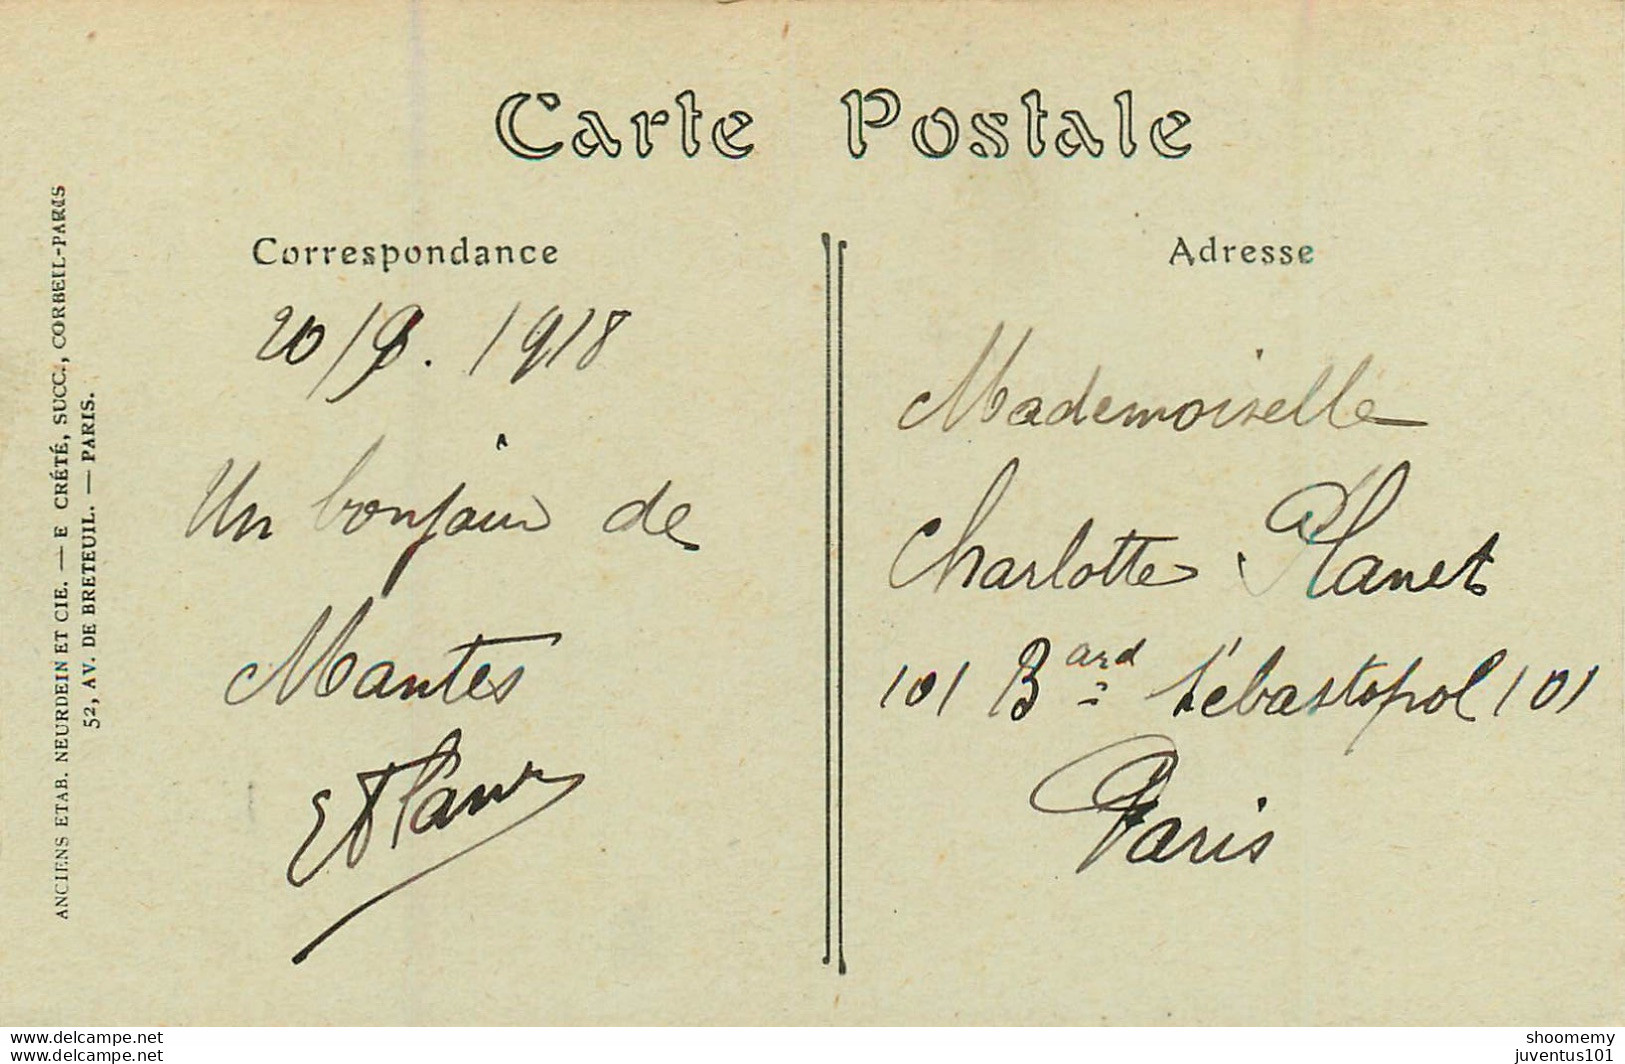 Carte Postale
ANCIENS ETAB. NEURDEIN ET CIE. — E CRÉTÉ, SUCC., CORBEIL-PARIS
52, AV. DE BRETEUIL. — PARIS.
Correspondance
20/9. 1918
Un bonjour de
Mantes
Adresse
Mademoiselle
Charlotte Planet
101 Bard Sébastopol 101
Paris
www.delcampe.net
www.delcampe.net
shoomemy
juventus101